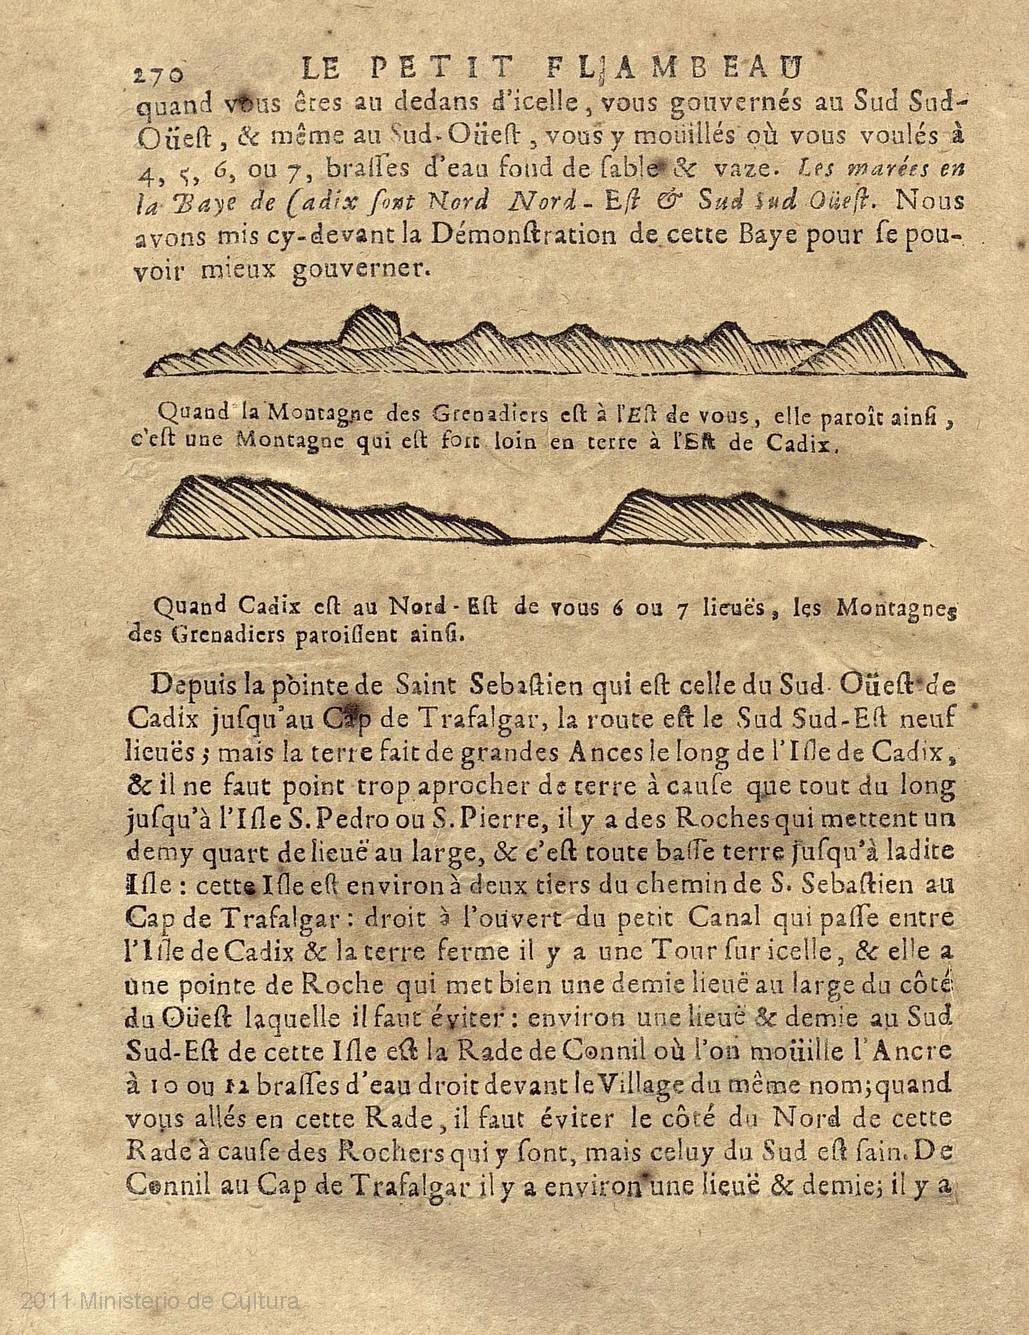 270 LE PETIT FLAMBEAU
quand vous êtes au dedans d'icelle, vous gouvernés au Sud Sud-
Oüeſt, & même au Sud-Oüeſt, vous y moüillés où vous voulés à
4, 5, 6, ou 7, braſſes d'eau fond de ſable & vaze. Les marées en
la Baye de Cadix ſont Nord Nord-Eſt & Sud Sud Oüeſt. Nous
avons mis cy-devant la Démonſtration de cette Baye pour ſe pou-
voir mieux gouverner.
Quand la Montagne des Grenadiers eſt à l'Eſt de vous, elle paroît ainſi,
c'eſt une Montagne qui eſt fort loin en terre à l'Eſt de Cadix.
Quand Cadix eſt au Nord-Eſt de vous 6 ou 7 lieuës, les Montagnes
des Grenadiers paroiſſent ainſi.
Depuis la pointe de Saint Sebaſtien qui eſt celle du Sud-Oüeſt de
Cadix juſqu'au Cap de Trafalgar, la route eſt le Sud Sud-Eſt neuf
lieuës; mais la terre fait de grandes Ances le long de l'Iſle de Cadix,
& il ne faut point trop aprocher de terre à cauſe que tout du long
juſqu'à l'Iſle S. Pedro ou S. Pierre, il y a des Roches qui mettent un
demy quart de lieuë au large, & c'eſt toute baſſe terre juſqu'à ladite
Iſle: cette Iſle eſt environ à deux tiers du chemin de S. Sebaſtien au
Cap de Trafalgar: droit à l'ouvert du petit Canal qui paſſe entre
l'Iſle de Cadix & la terre ferme il y a une Tour ſur icelle, & elle a
une pointe de Roche qui met bien une demie lieuë au large du côté
du Oüeſt laquelle il faut éviter: environ une lieuë & demie au Sud
Sud-Eſt de cette Iſle eſt la Rade de Connil où l'on moüille l'Ancre
à 10 ou 12 braſſes d'eau droit devant le Village du même nom; quand
vous allés en cette Rade, il faut éviter le côté du Nord de cette
Rade à cauſe des Rochers qui y ſont, mais celuy du Sud eſt ſain. De
Connil au Cap de Trafalgar il y a environ une lieuë & demie; il y a
2011 Ministerio de Cultura